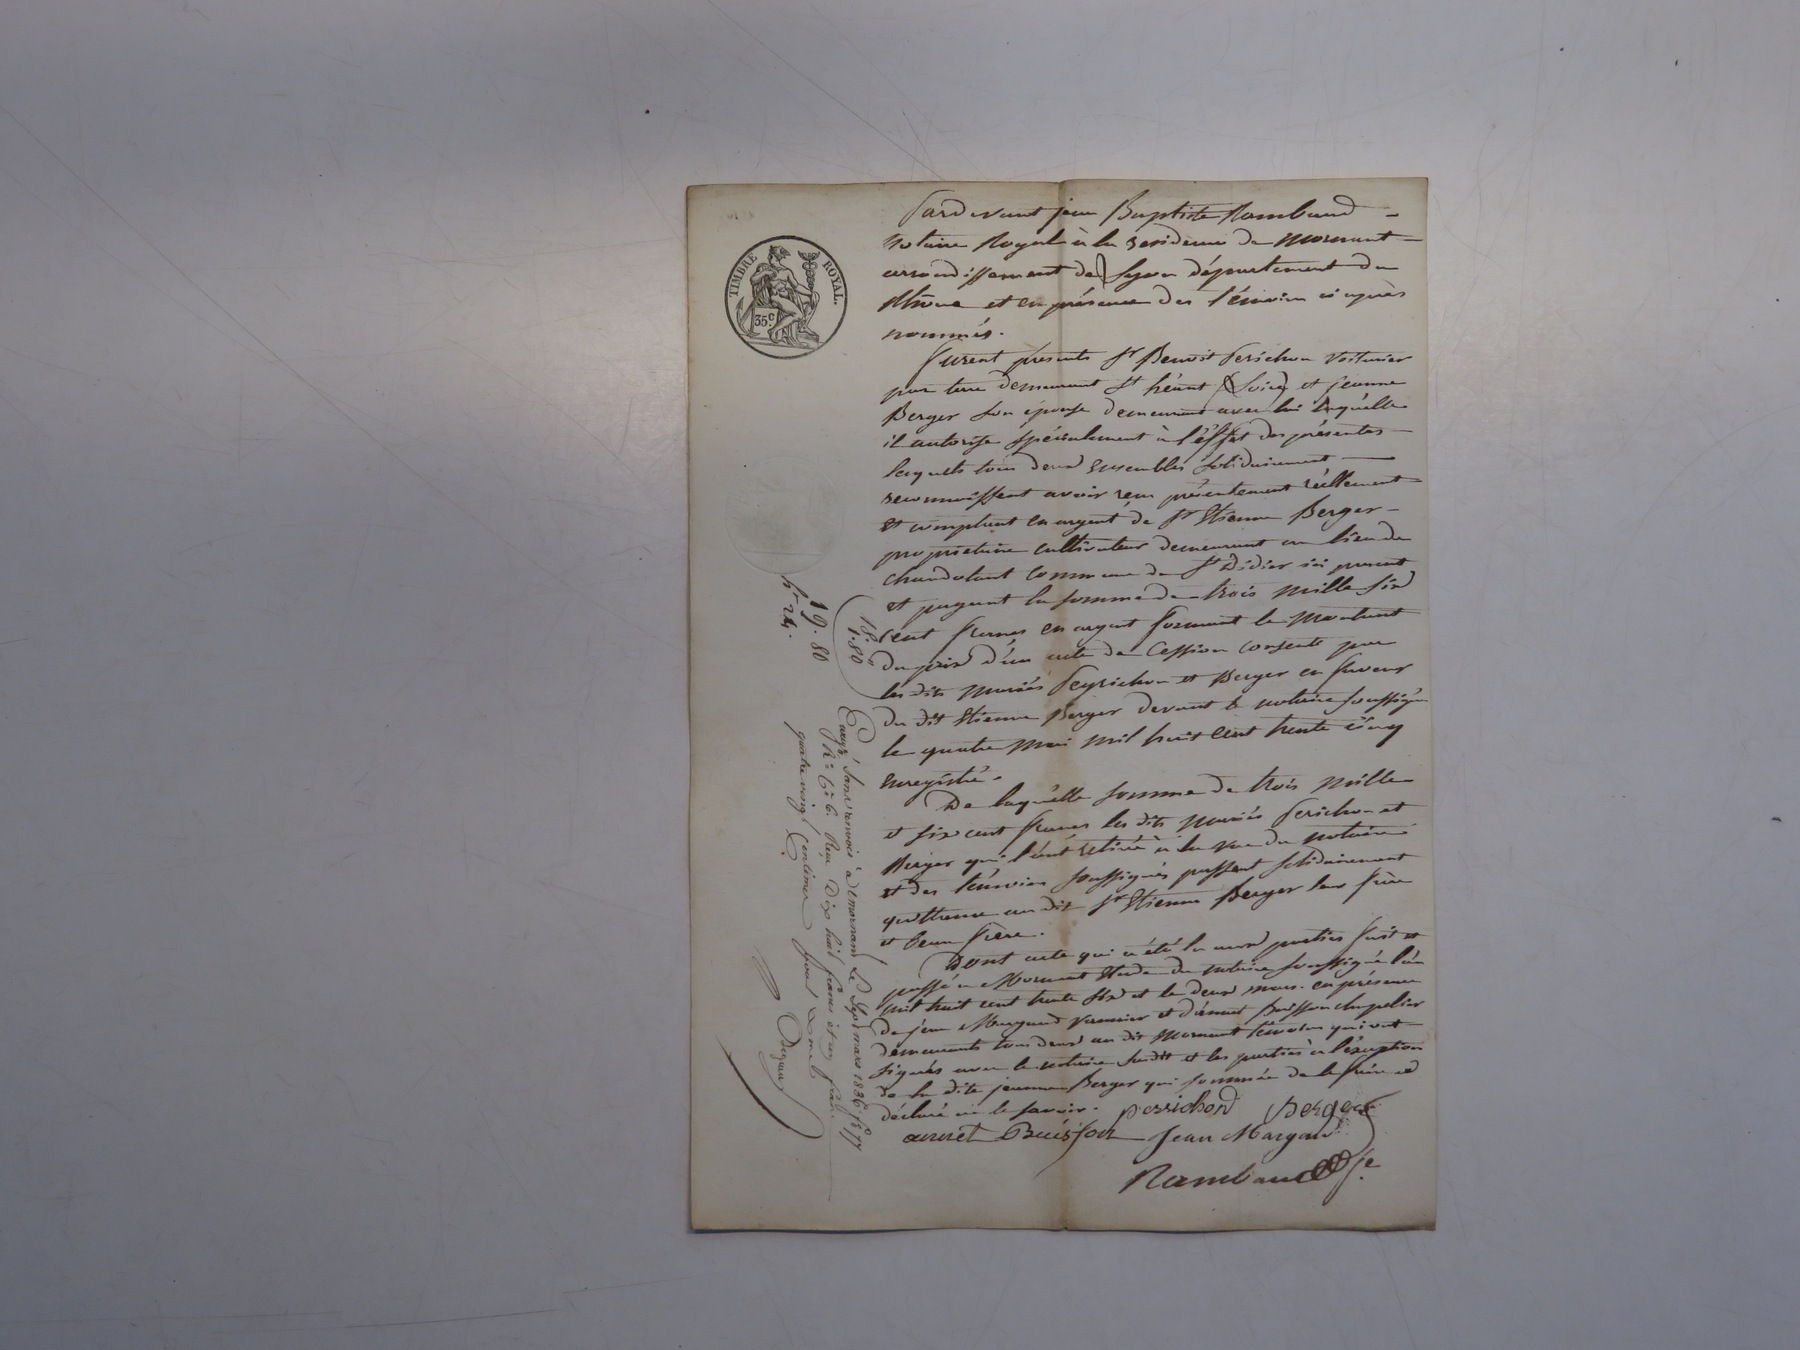 TIMBRE ROYAL.
35c
Pardevant jean Baptiste Rambaud
notaire Royal à la résidence de Mornant
arrondissement de Lyon département du
Rhône et en présence des témoins ci après
nommés.
Furent présents Sr Benoit Perichon voiturier
par terre demeurant St héant (Loire) et jeanne
Berger son épouse demeurant avec lui laquelle
il autorise spécialement à l'éffet des présentes
lesquels tous deux ensembles solidairement
reconnaissent avoir reçu présentement réellement
et comptant en argent de Sr Etienne Berger
propriétaire cultivateur demeurant au lieu de
commune de St Didier ici présent
et payant la somme de trois mille six
cent francs en argent formant le montant
du prix d'un acte de Cession consenti par
les dits mariés Peyrichon et Berger en faveur
du dit Etienne Berger devant le notaire soussigné
le quatre mai mil huit cent trente cinq
enregistré.
De laquelle somme de trois mille
et six cent francs les dits mariés Perichon et
Berger qui l'ont retirée à la vue du notaire
et des témoins soussignés passent solidairement
quittance au dit Sr Etienne Berger leur frère
et beau frère.
Dont acte qui a été lu aux parties fait et
passé à Mornant Etude du notaire soussigné l'an
mil huit cent trente six et le deux mars. en présence
de jean Margand et Buisson chapelier
demeurants tous deux au dit Mornant témoins qui ont
signés avec le notaire susdit et les parties à l'éxception
de la dite jeanne Berger qui sommée de le faire a
déclaré ne le savoir.
perrichond Berger
Buisson Jean Margand
Rambaud
18.
1.80
19.80
Enregé sans renvois à Mornant Le Sept mars 1836 fo 77
Ro Co 6. Reçu Dix huit francs et un franc
quatre vingt Centimes pour